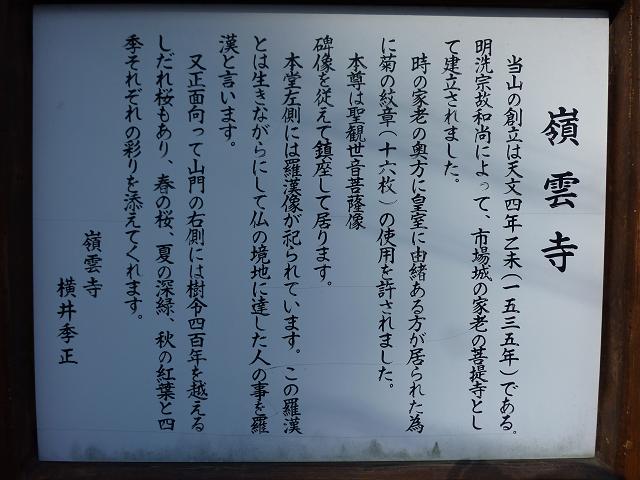 嶺雲寺
当山の創立は天文四年乙未（一五三五年）である。
明洗宗故和尚によって、市場城の家老の菩提寺とし
て建立されました。
時の家老の奥方に皇室に由緒ある方が居られた為
に菊の紋章（十六枚）の使用を許されました。
本尊は聖観世音菩薩像
碑像を従えて鎮座して居ります。
本堂左側には羅漢像が祀られています。この羅漢
とは生きながらにして仏の境地に達した人の事を羅
漢と言います。
又正面向って山門の右側には樹令四百年を越える
しだれ桜もあり、春の桜、夏の深緑、秋の紅葉と四
季それぞれの彩りを添えてくれます。
嶺雲寺
横井季正